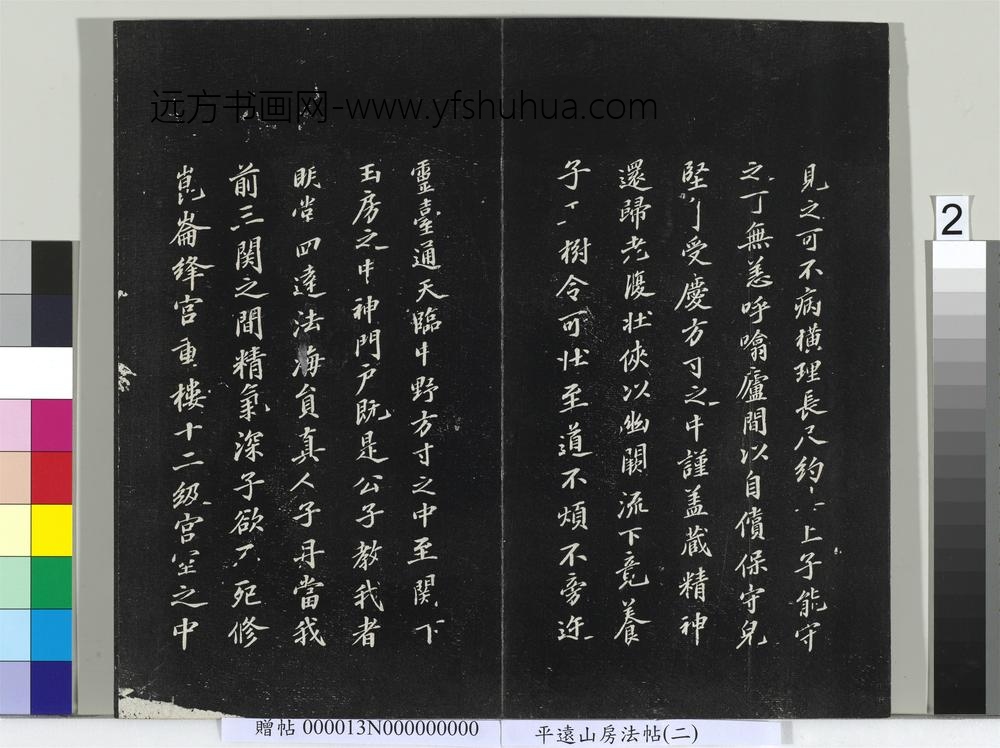 远方书画网-www.yfshuhua.com
見之可不病橫理長尺約上子能守
之可無恙呼噏廬間以自償保守皃
堅受慶方寸之中謹蓋藏精神
還歸老復壯俠以幽闕流下竟養
子樹令可壯至道不煩不旁迕
靈臺通天臨中野方寸之中至關下
玉房之中神門戶既是公子教我者
明堂四達法海員真人子丹當我
前三關之間精氣深子欲不死修
崑崙絳宮重樓十二級宮室之中
2
贈帖 000013N000000000
平遠山房法帖(二)